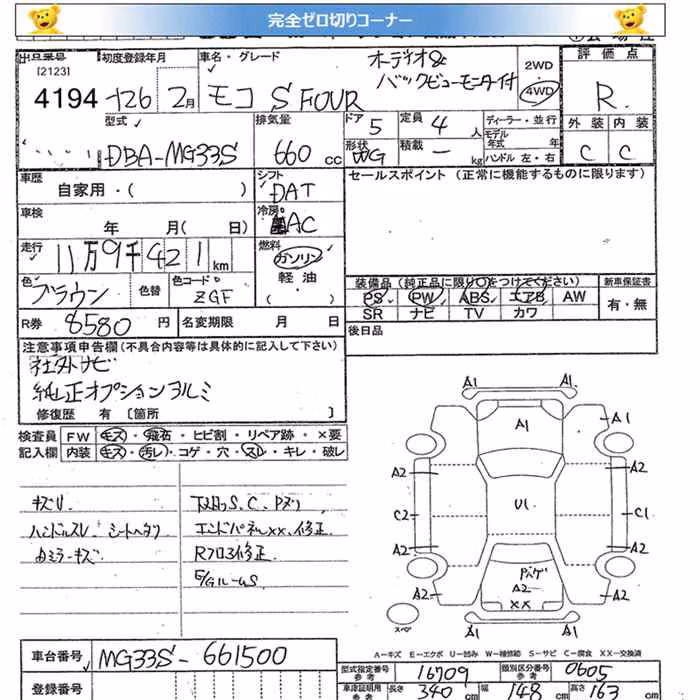 完全ゼロ切りコーナー
出品番号 初度登録年月 車名・グレード オーディオ& 2WD 評価点
[2123] バックビューモニター付 4WD
4194 H26 2月 モコ S FOUR R
型式 排気量 ドア 5 定員 4人 ディーラー・並行 外装 内装
DBA-MG33S 660 cc 形状 WG 積載 - kg モデル年式 年 C C
ハンドル 左・右
車歴 シフト セールスポイント (正常に機能するものに限ります)
自家用・( ) DAT
車検 冷房
年 月( 日) AC
走行 燃料
11万9千421km ガソリン
軽油
( )
色 色替 色コード 装備品 (純正品に限り○をつけてください) 新車保証書
ブラウン ZGF PS PW ABS エアB AW 有・無
SR ナビ TV カワ
R券 8580円 名変期限 月 日 後日品
注意事項申告欄(不具合内容等は具体的に記入して下さい)
社外ナビ
純正オプションアルミ
修復歴 有 [箇所 ]
検査員 FW キズ・飛石・ヒビ割・リペア跡・×要
記入欄 内装 キズ・汚レ・コゲ・穴・スレ・キレ・破レ
キズU 下廻りS、C、Pヌリ
ハンドルスレ シートヘタリ エンドパネルXX、修正
Rフロア修正
E/GルームS
A1 A1
A1 A1
A2 A2
C2 U1 C1
A2 A2
A1 A1
A2
XX
スペア
A1
A-キズ E-エクボ U-凹み W-補修跡 S-サビ C-腐食 XX-交換済
車台番号 MG33S-661500
型式指定番号 参考 16709 類別区分番号 参考 0605
登録番号 車庫証明用 参考 長さ 340 cm 幅 148 cm 高さ 163 cm